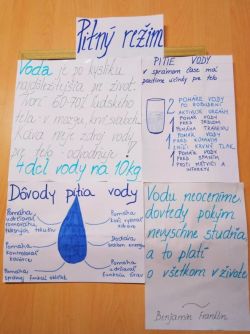 Pitný režim
Voda je po kyslíku
najdôležitejšia pre život.
Tvorí 60-70% ľudského
tela v mozgu, krvi, svaloch
Káva nie je zdroj vody,
ale telo odvodňuje!
4 dcl vody na 10kg
PITIE VODY
v správnom čase má
pozitívne účinky pre telo.
2 POHÁRE VODY
PO ZOBUDENÍ
AKTIVUJE ORGÁNY
1 POHÁR VODY
PRED JEDLOM
POMÁHA TRÁVENIU
1 POHÁR VODY
PRED
ZNÍŽI KRVNÝ TLAK
1 POHÁR VODY
PRED SPANÍM
PROTI MŔTVICI A
INFARKTU
Dôvody pitia vody
Pomáha
udržiavať
telesných tekutín
Pomáha
kontrolovať
kalórie
Pomáha
správnej funkcii obličiek
Pomáha
koži vyzerať
zdravo
Dodáva
svalom energiu
Pomáha
udržiavať
funkciu čriev
Vodu neoceníme,
dovtedy pokým
nevyschne studňa
a to platí
o všetkom v živote
Benjamin Franklin